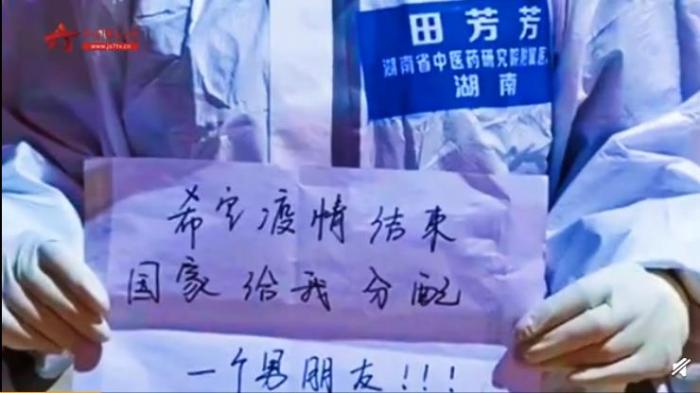 www.js7tv.cn
田芳芳
湖南省中医药研究院附属医
湖南
希望疫情结束
国家给我分配
一个男朋友!!!